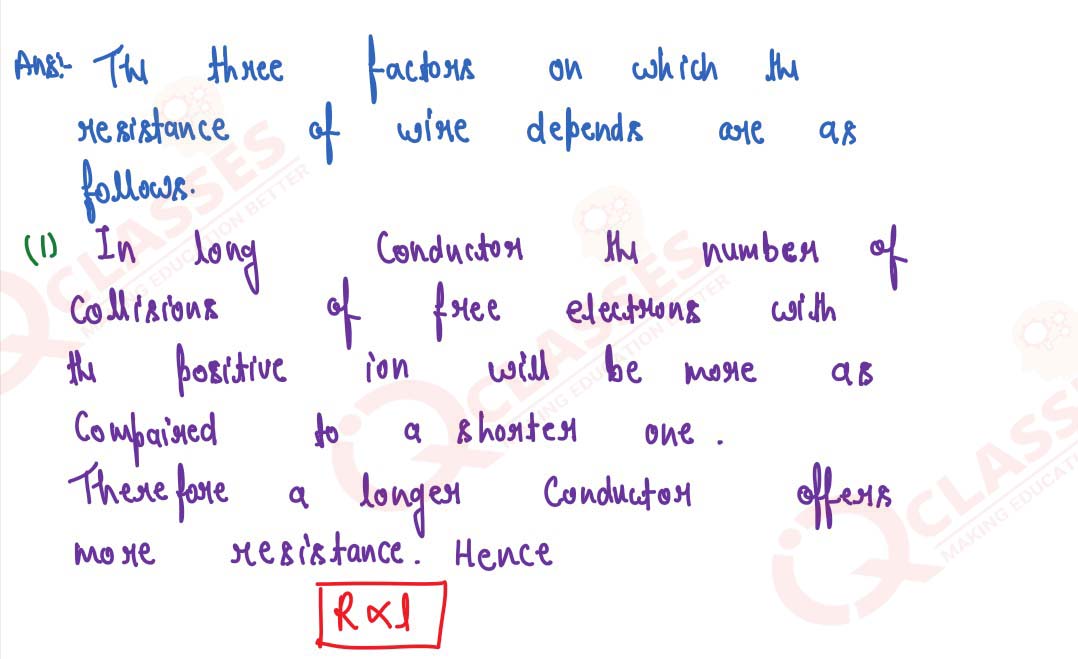 Ans:- The three factors on which the
resistance of wire depends are as
follows.
(1) In long Conductor the number of
Collisions of free electrons with
the positive ion will be more as
Compaired to a shorter one.
Therefore a longer Conductor offers
more resistance. Hence
R ∝ l
iQ CLASSES
MAKING EDUCATION BETTER
iQ CLASSES
MAKING EDUCATION BETTER
iQ CLASSES
MAKING EDUCATION